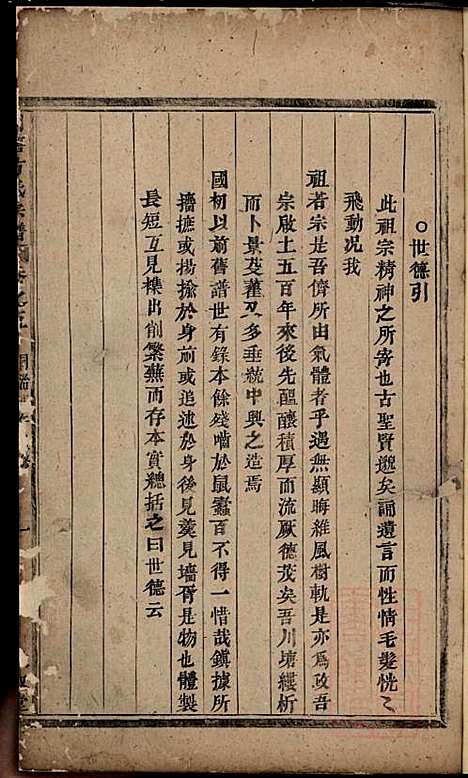 ○世德引
此祖宗精神之所寄也古聖賢邈矣誦遺言而性情毛髮恍〻
飛動况我
祖若宗是吾儕所由氣體者乎遇無顯晦維風樹軌是亦為政吾
宗啟土五百年來後先醞釀積厚而流厥德茂矣吾川壤縷析
而卜景芟蓳又多垂統中興之造焉
國初以前舊譜世有錄本餘殘嚙於鼠蠹百不得一惜哉鎮據所
擣摭或揚揄於身前或追述於身後見羹見墻胥是物也體製
長短互見摟出削繁蕪而存本實總括之曰世德云